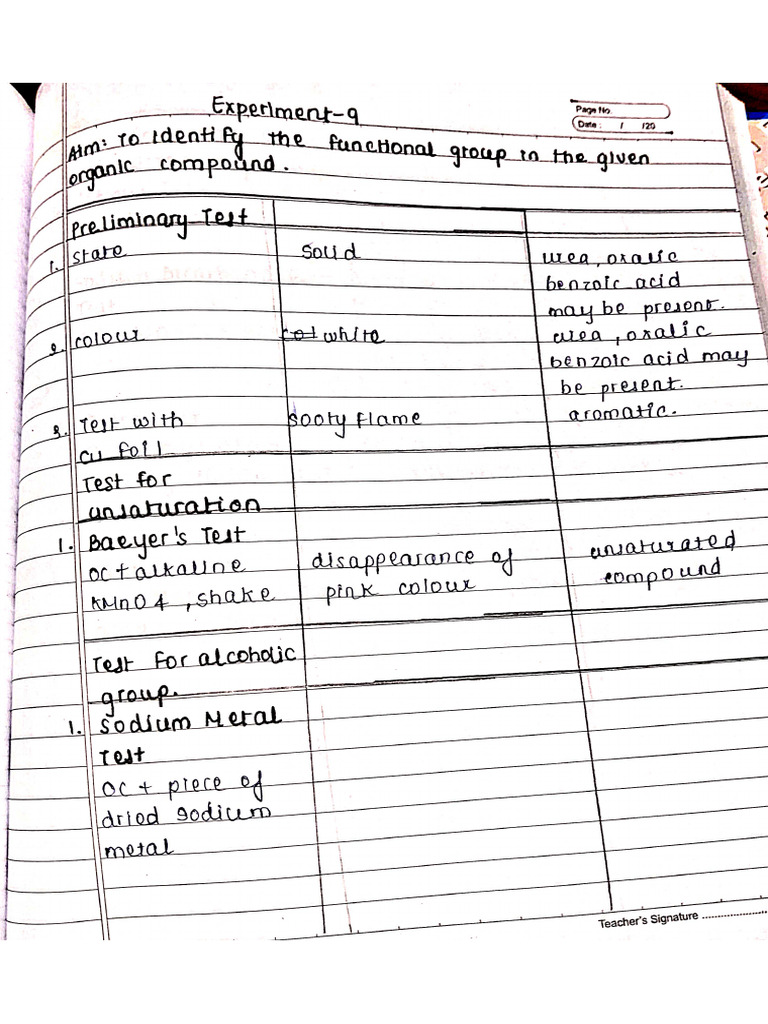 Experiment-9
Page No.
Date : / /20
Aim: To identify the functional group in the given
organic compound.
Preliminary Test
1. state solid urea, oxalic
benzoic acid
may be present.
2. colour white urea, oxalic
benzoic acid may
be present.
3. Test with sooty flame aromatic.
cu foil
Test for
unsaturation
1. Baeyer's Test
OC + alkaline disappearance of unsaturated
KMnO4, shake pink colour compound
Test for alcoholic
group.
1. Sodium Metal
Test
OC + piece of
dried sodium
metal
Teacher's Signature ......................